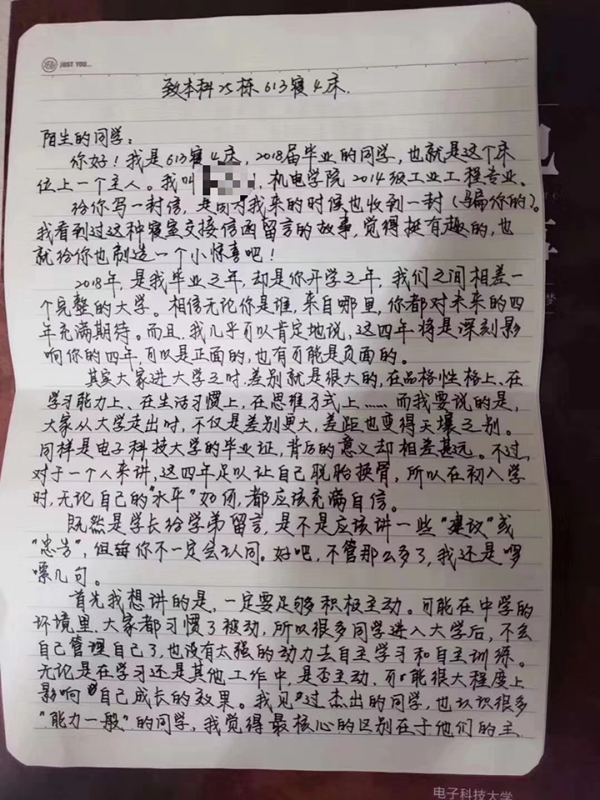 JUST YOU...
致本科25栋613寝4床.
陌生的同学:
你好!我是613寝4床,2018届毕业的同学,也就是这个床
位上一个主人。我叫,机电学院2014级工业工程专业、
给你写一封信,是因为我来的时候也收到一封(骗你的)。
我看到过这种寝室交接信函留言的故事,觉得挺有趣的,也
就给你也制造一个小惊喜吧!
2018年,是我毕业之年,却是你开学之年,我们之间相差一
个完整的大学。相信无论你是谁,来自哪里,你都对未来的四
年充满期待。而且,我几乎可以肯定地说,这四年将是深刻影
响你的四年,可以是正面的,也有可能是负面的。
其实大家进大学之时,差别就是很大的,在品格性格上、在
学习能力上、在生活习惯上,在思维方式上……而我要说的是,
大家从大学走出时,不仅是差别更大,差距也变得天壤之别。
同样是电子科技大学的毕业证,背后的意义却相差甚远。不过,
对于一个人来讲,这四年足以让自己脱胎换骨,所以在初入学
时,无论自己的“水平”如何,都应该充满自信。
既然是学长给学弟留言,是不是应该讲一些“建议”或
“忠告”,但每你不一定会认同。好吧,不管那么多了,我还是啰
嗦几句。
首先我想讲的是,一定要足够积极主动。可能在中学的
环境里,大家都习惯了被动,所以很多同学进入大学后,不会
自己管理自己了,也没有太强的动力去自主学习和自主训练。
无论是在学习还是其他工作中,是否主动,可能很大程度上
影响自己成长的效果。我见过杰出的同学,也认识很多
“能力一般”的同学,我觉得最核心的区别在于他们的主
电子科技大学
梦